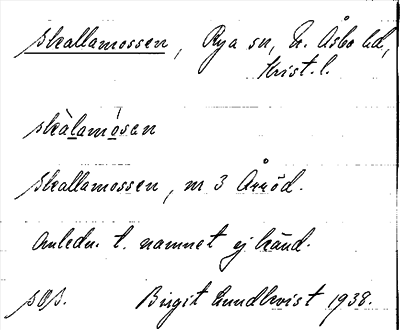 Skallamossen, Rya sn, N. Åsbo hd,
Krist. l.
skàlamósan
Skallamossen, m 3 Årröd.
Anledn. t. namnet ej känd.
Birgit Lundkvist 1938.